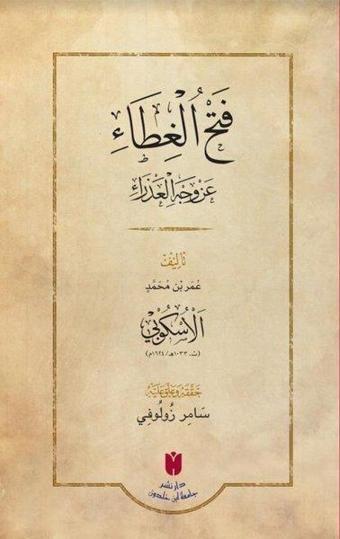 فَتْحُ الْغِطَاءِ
عَنْ وَجْهِ الْعَذْرَاءِ
تَأْلِيف
عُمَر بْن مُحَمَّدٍ
اَلْأُسْكُوبِيّ
(ت. ١٠٣٣هـ/١٦٢٤م)
حَقَّقَهُ وَعَلَّقَ عَلَيْهِ
سَامِر زُولُوفِي
دار نشر
جامعة ابن خلدون